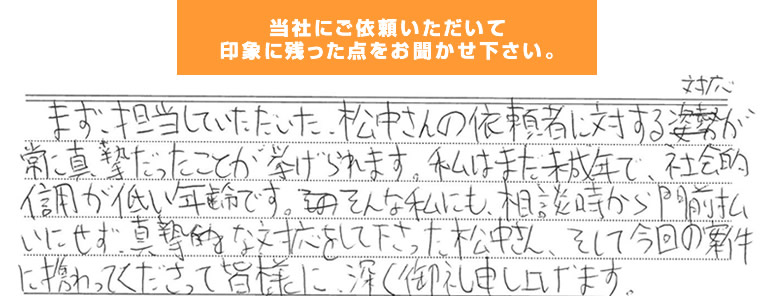 当社にご依頼いただいて
印象に残った点をお聞かせ下さい。
対応
まず、担当していただいた、松中さんの依頼者に対する姿勢が
常に真摯だったことが挙げられます。私はまだ未成年で、社会的
信用が低い年齢です。そんな私にも、相談時から門前払
いにせず、真摯的な対応をして下さった松中さん、そして今回の案件
に携わってくださって皆様に、深く御礼申し上げます。